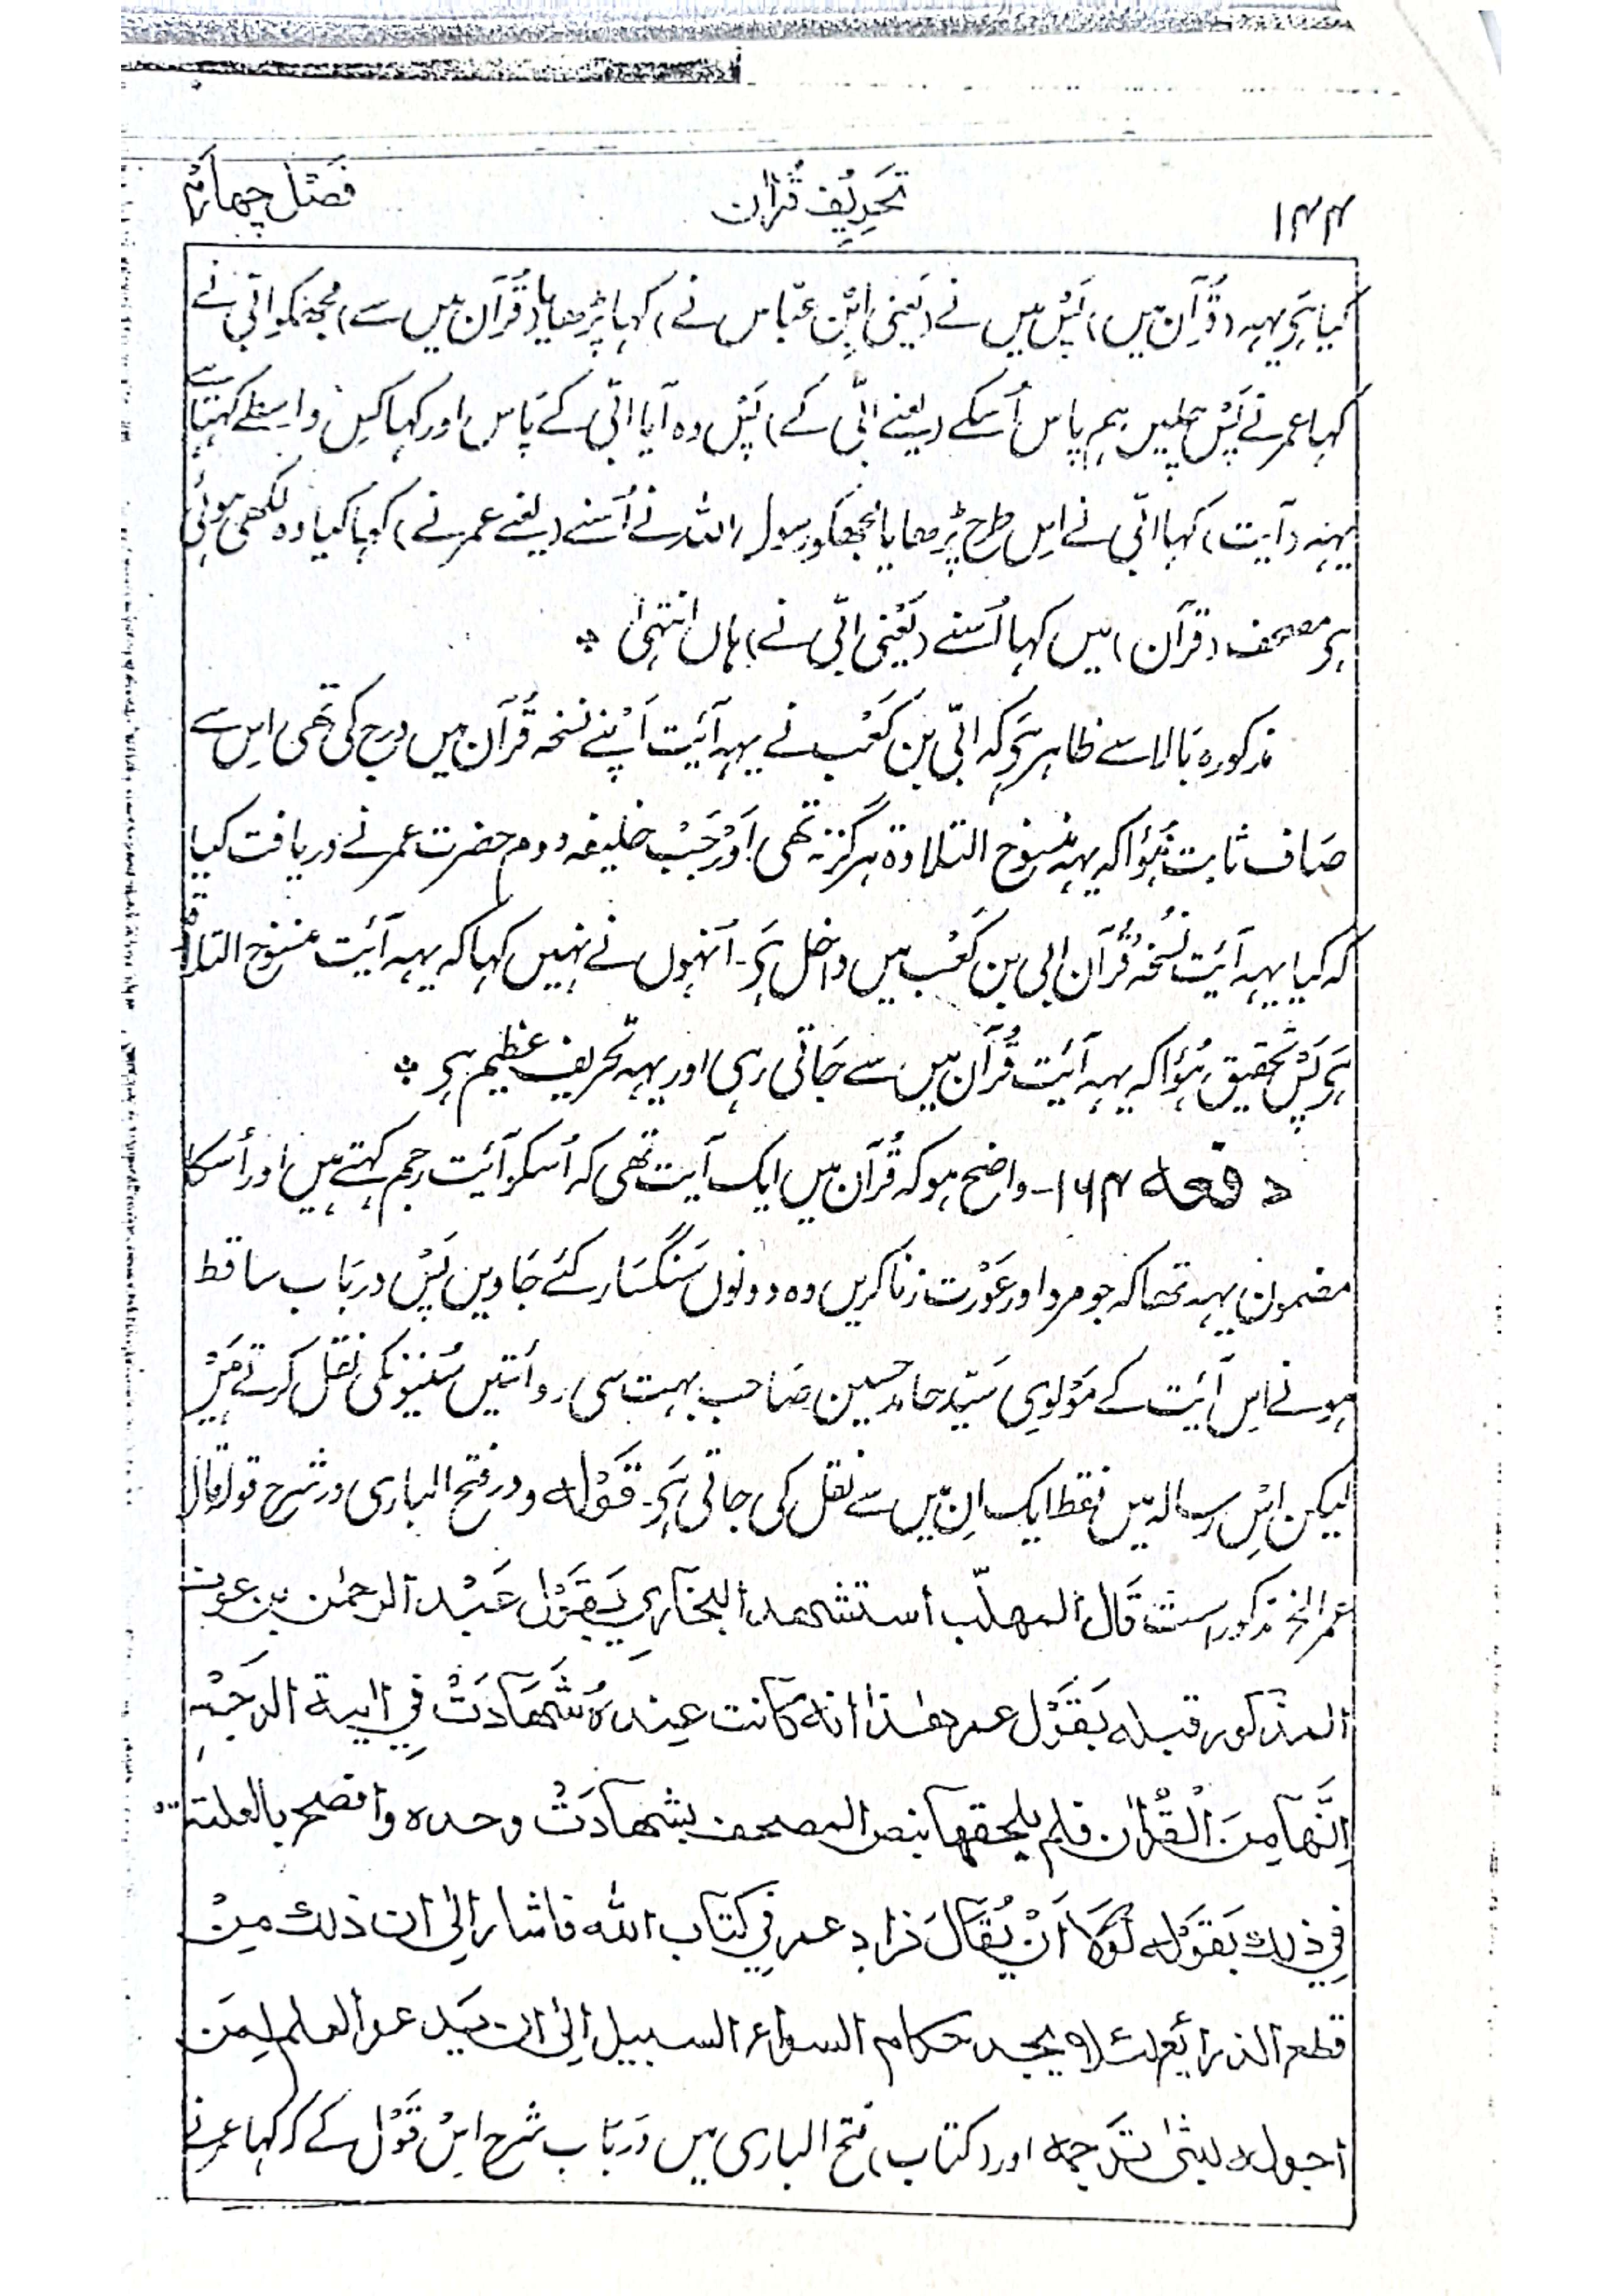 ۱۴۴ تحریف قرآن فصل چہارم
کیا ہَی یہہ (قُرآن میں) پَس میں نے (یَعنی ابن عبّاس نے) کہا پڑھایا (قُرآن میں سے) مجھکو ابّی نے
کہا عمر نے پَس چلیں ہم پاس اُسکے (یعنے ابّی کے) پَس وہ آیا ابّی کے پاس اور کہا کِس واسطے کہتا ہے
یہہ (آیت) کہا ابّی نے اِس طرح پڑھایا مجھکو رسول اللہ نے اُسنے (یعنے عمر نے) کہا کیا وہ لکھی ہوئی
ہَی مصحف (قرآن) میں کہا اُسنے (یَعنی ابّی نے) ہاں انتہیٰ ÷
مذکورہ بَالا سے ظاہر ہَی کہ ابّی بن کَعب نے یہہ آیَت اَپنے نسخہ قُرآن میں درج کی تھی اِس سے
صَاف ثابت ہُؤا کہ یہہ منسوخ التلاوۃ ہرگز نہ تھی اَور جَب خلیفہ دوم حضرت عمر نے دریافت کیا
کہ کیا یہہ آیَت نُسخہ قُرآن ابی بن کَعب میں داخل ہَی۔ اُنہوں نے نہیں کہا کہ یہہ آیَت منسوخ التلاوۃ
ہَی پَس تحقیق ہُؤا کہ یہہ آیَت قُرآن میں سے جَاتی رہی اور یہہ تحریف عظیم ہی ÷
دفعہ ۱۶۴۔ واضح ہو کہ قُرآن میں ایک آیت تھی کہ اُسکو آیَت رجم کہتے ہیں اور اُسکا
مضمون یہہ تھا کہ جو مرد اور عَورت زنا کریں وہ دونوں سَنگسَار کئے جَاویں پَس دربَاب ساقط
ہونے اِس آیَت کے مَولوی سَیّد حامد حسین صَاحب بہت سی روائتیں سُنّیونکی نقل کرتے ہَیں
لیکن اِس رسالہ میں فقط ایک اِن میں سے نقل کی جاتی ہَی۔ قَولہ ودر فتح الباری در شرح قول قال
عمر الخ مذکور است قَال المهلّب استشهد البخاري بقَوْل عَبْد الرحمٰن بن عوف
المذكور قبله بقَوْل عمر هذا انه كانت عنده شَهَادَتْ فِي اٰية الرجَم
اِنَّهَا مِنَ الْقُرْاٰن فلم يلحقها بنص المصحف بشهادَتْ وحده وافصح بالعلة
فِي ذلك بقَوْله لَوْلَا اَنْ يُقَالَ زاد عمر فِي كتاب الله فاشار اِلیٰ ان ذلك مِنْ
قطع الذرائع لئلا يجد حكام السواء السبيل اِلیٰ ان يَدعوا العلم لِمَن
احبوا له بشئ ترجمہ اور (کتاب) فتح الباری میں دَربَاب شرح اِس قَول کے کہ کہا عمر نے